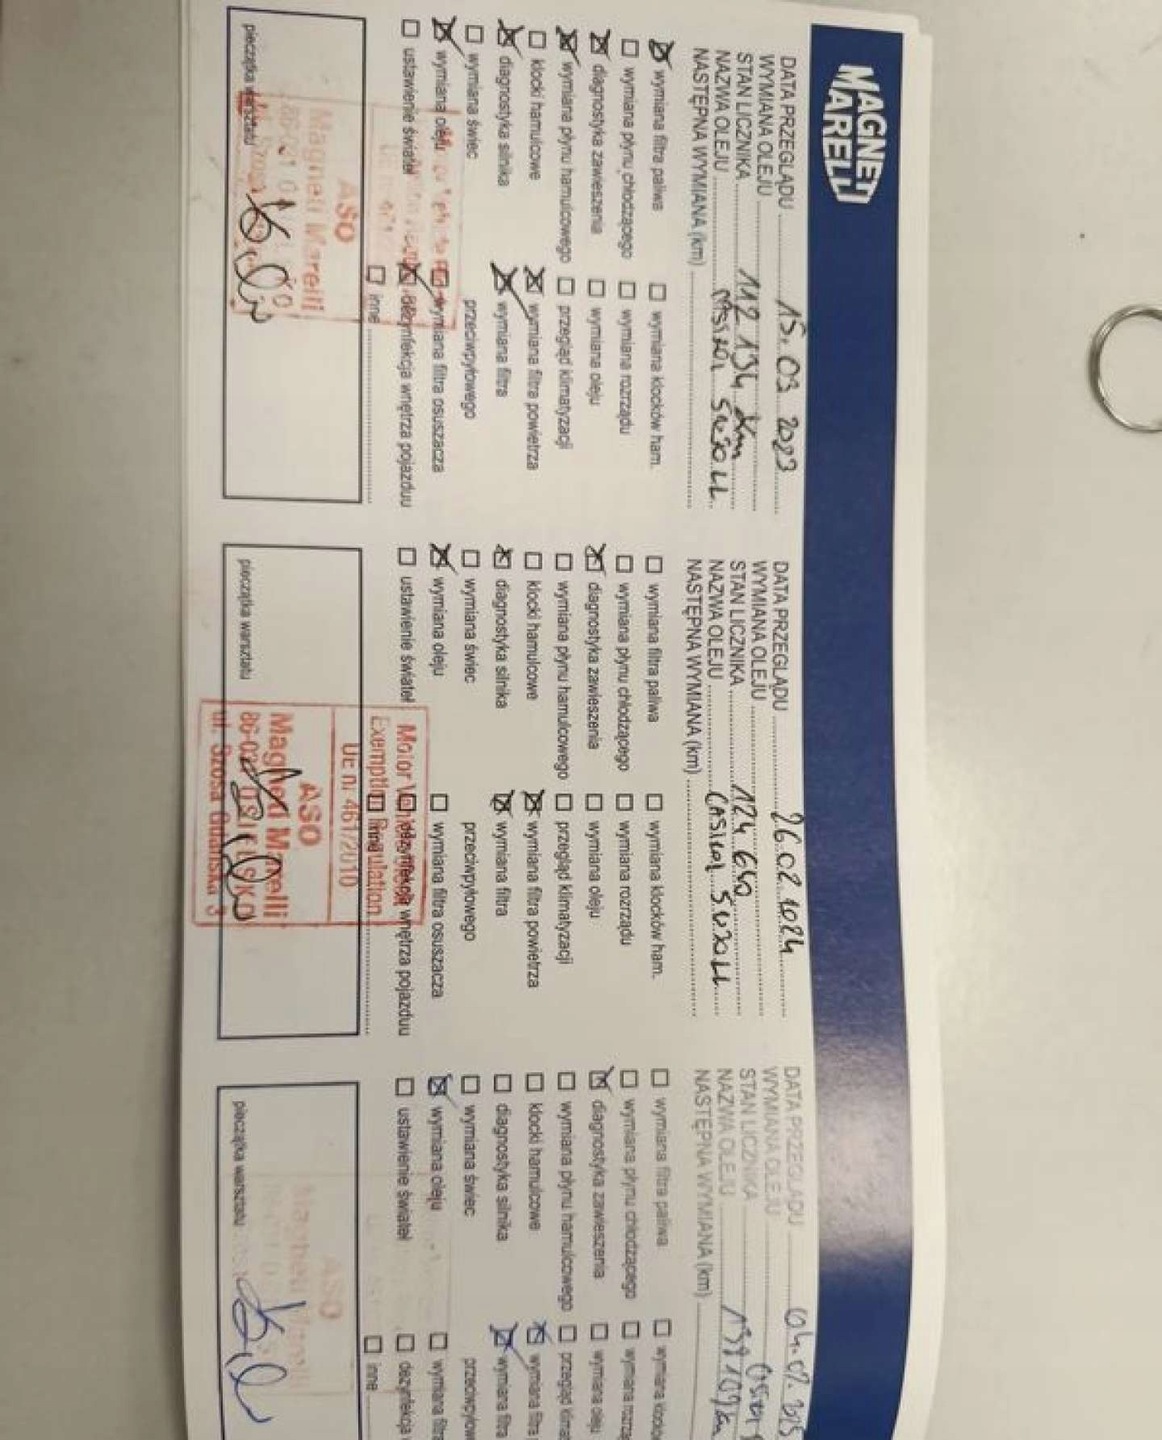 MAGNETI
MARELLI
DATA PRZEGLĄDU 15.03 2023
WYMIANA OLEJU
STAN LICZNIKA 112 134 km
NAZWA OLEJU 5W30 LL
NASTĘPNA WYMIANA (km)
wymiana filtra paliwa
wymiana klocków ham.
wymiana płynu chłodzącego
wymiana rozrządu
diagnostyka zawieszenia
wymiana oleju
wymiana płynu hamulcowego
przegląd klimatyzacji
klocki hamulcowe
wymiana filtra powietrza
diagnostyka silnika
wymiana filtra
wymiana świec
przeciwpyłowego
wymiana oleju
wymiana filtra osuszacza
ustawienie świateł
dezynfekcja wnętrza pojazduu
inne
ASO
Magneti Marelli
pieczątka warsztatu
DATA PRZEGLĄDU 26.02.2024
WYMIANA OLEJU
STAN LICZNIKA 124 660
NAZWA OLEJU CASTROL 5W30 LL
NASTĘPNA WYMIANA (km)
wymiana filtra paliwa
wymiana klocków ham.
wymiana płynu chłodzącego
wymiana rozrządu
diagnostyka zawieszenia
wymiana oleju
wymiana płynu hamulcowego
przegląd klimatyzacji
klocki hamulcowe
wymiana filtra powietrza
diagnostyka silnika
wymiana filtra
wymiana świec
przeciwpyłowego
wymiana oleju
wymiana filtra osuszacza
ustawienie świateł
dezynfekcja wnętrza pojazduu
inne
Motor Vehicle
Exemption Regulation
UE nr 461/2010
ASO
Magneti Marelli
86-031 OSIELSKO
ul. Szosa Gdańska 3
pieczątka warsztatu
DATA PRZEGLĄDU 04.02.2025
WYMIANA OLEJU
STAN LICZNIKA 139 109 km
NAZWA OLEJU
NASTĘPNA WYMIANA (km)
wymiana filtra paliwa
wymiana klocków
wymiana płynu chłodzącego
wymiana rozrzą
diagnostyka zawieszenia
wymiana oleju
wymiana płynu hamulcowego
przegląd klimat
klocki hamulcowe
wymiana filtra
diagnostyka silnika
wymiana filtra
wymiana świec
przeciwpyłow
wymiana oleju
wymiana filtra
ustawienie świateł
dezynfekcja
inne
ASO
Magneti Marelli
pieczątka warsztatu